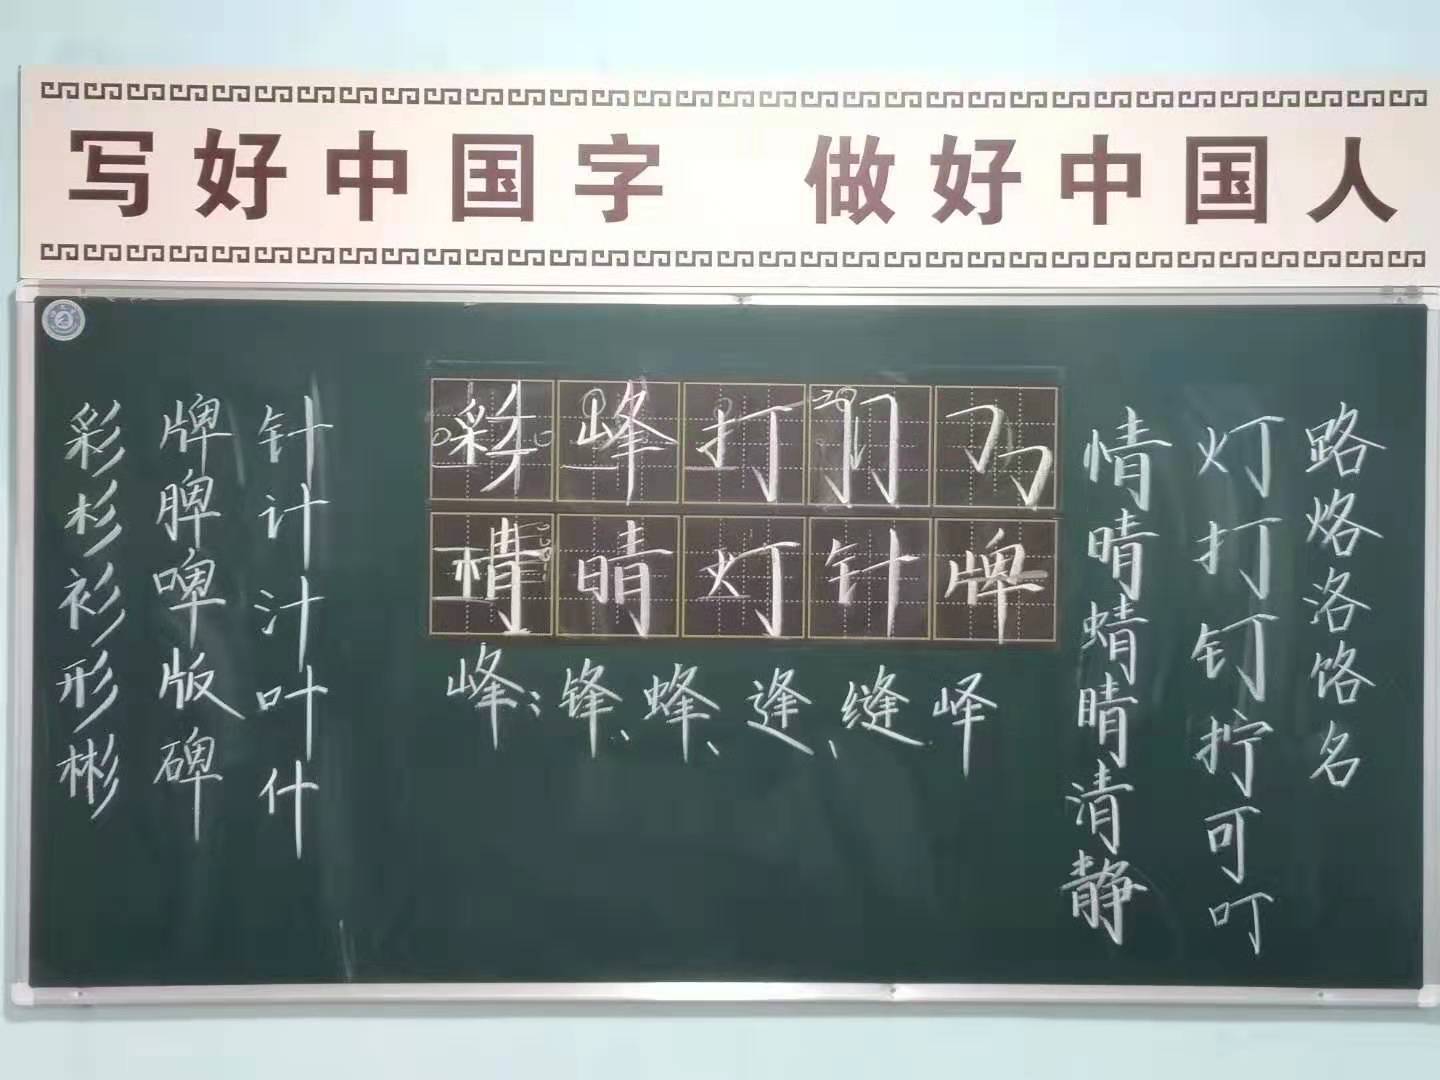 写好中国字 做好中国人
彩杉衫形彬
牌脾啤版碑
针计汁叶什
彩峰打
晴灯针牌
峰：锋、蜂、逢、缝峄
情晴蜻睛清静
灯打钉拧可叮
路烙洛饹名